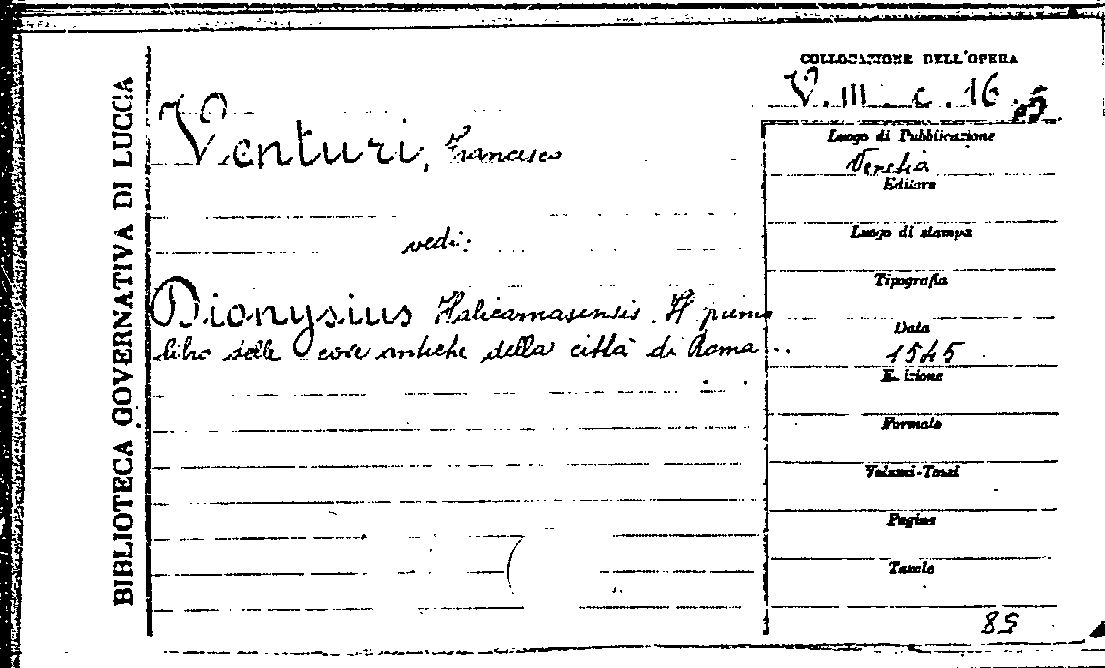 BIBLIOTECA GOVERNATIVA DI LUCCA
COLLOCAZIONE DELL'OPERA
V. III. c. 16
Venturi, Francesco
vedi:
Dionysius Halicarnasensis. Il primo
libro delle cose antiche della città di Roma ..
Luogo di Pubblicazione
Venetia
Editore
Luogo di stampa
Tipografia
Data
1545
Edizione
Formato
Volumi-Tomi
Pagine
Tavole
85